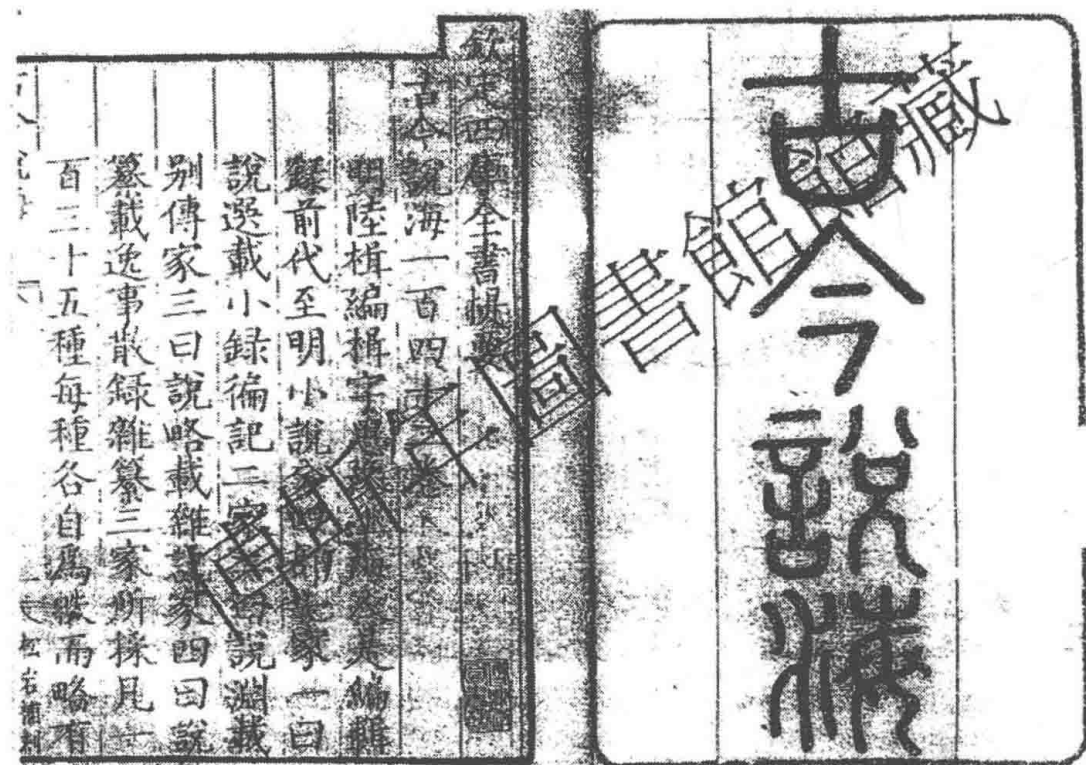 古今說海
欽定四庫全書提要
古今說海一百四十二卷
明陸楫編楫字思豫上海人是編輯
錄前代至明小說分四部七家一曰
說選載小錄徧記二家二曰說淵載
別傳家三曰說略載雜記家四曰說
纂載逸事散錄雜纂三家所採凡一
百三十五種每種各自爲帙而略有
國書館藏